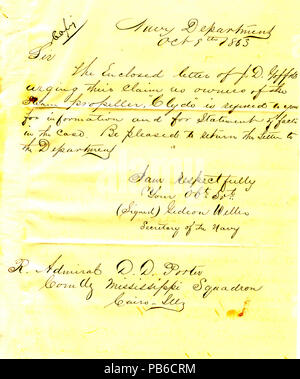 Copy
Navy Department
Oct 8th 1863
Sir
The Enclosed letter of J. D.
urging their claim as owners of the
propeller, Clyde is referred to you
for information and for Statement of facts
in the case. Be pleased to return the letter to
the Department
I am respectfully
Your Obt Svt
(Signed) Gideon Welles
Secretary of the Navy
R. Admiral D. D. Porter
Comdg Mississippi Squadron
Cairo Ills
alamy
Image ID: PB6CRM
www.alamy.com